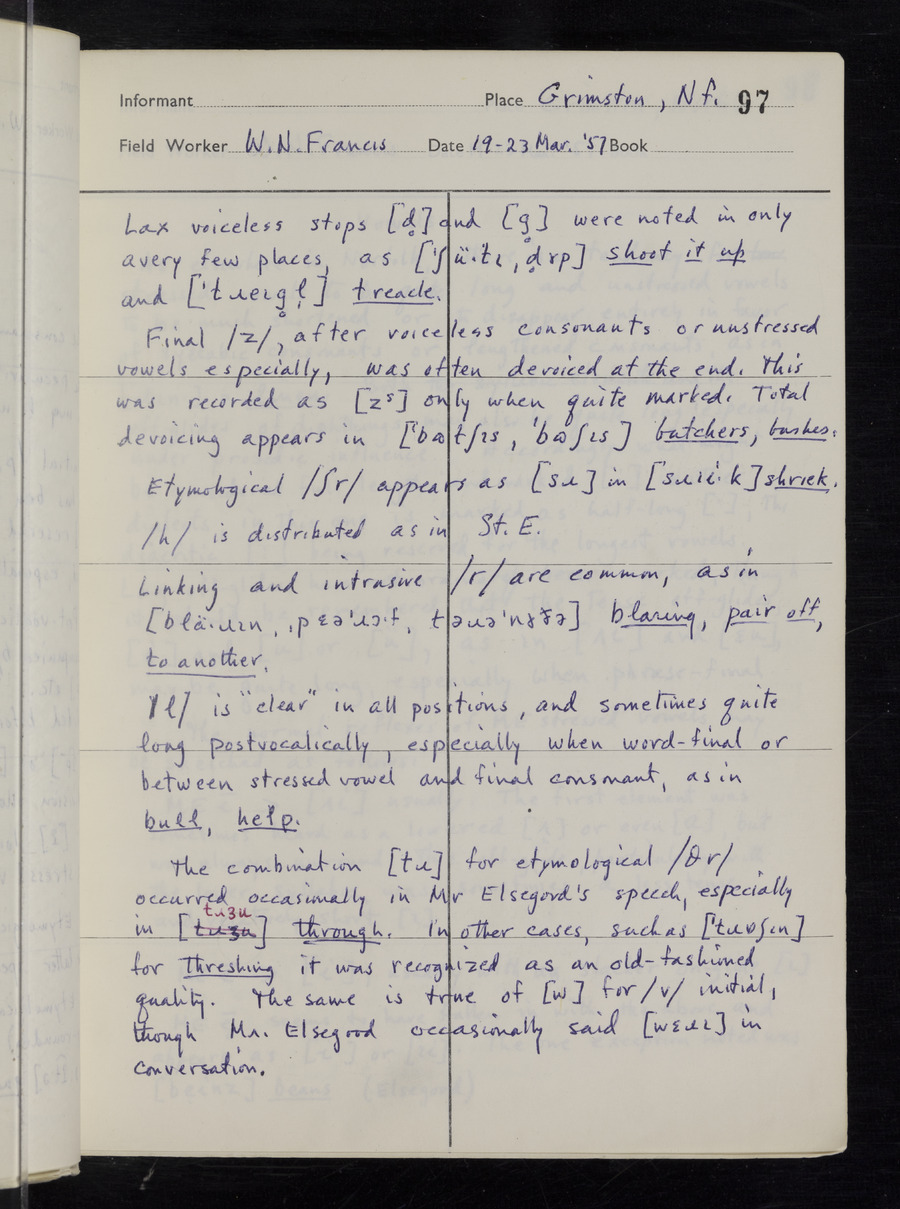 Informant Place Grimston, Nf. 97
Field Worker W.N. Francis Date 19-23 Mar. '57 Book
Lax voiceless stops [d̥] and [g̊] were noted in only
a very few places, as ['ʃü·tɩ ˌd̥ɤp] shoot it up
and ['tɹeɩg̊l̩] treacle.
Final /z/, after voiceless consonants or unstressed
vowels especially, was often devoiced at the end. This
was recorded as [zˢ] only when quite marked. Total
devoicing appears in ['bɷtʃɩs, 'bɷʃɩs] butchers, bushes.
Etymological /ʃr/ appears as [sɹ] in [sɹiˑk] shriek.
/h/ is distributed as in St. E.
Linking and intrusive /r/ are common, as in
[blä·ɹɩn, ˌpɛə'ɹɔ·f, təɹə'nɤðə] blaring, pair off,
to another.
/l/ is "clear" in all positions, and sometimes quite
long postvocalically, especially when word-final or
between stressed vowel and final consonant, as in
bull, help.
The combination [tɹ] for etymological /θr/
occurred occasionally in Mr Elsegord's speech, especially
tɹɜu
in [] through. In other cases, such as ['tɹɒʃɩn]
for threshing it was recognized as an old-fashioned
quality. The same is true of [w] for /v/ initial,
though Mr. Elsegood occasionally said [wɛɹɩ] in
conversation.